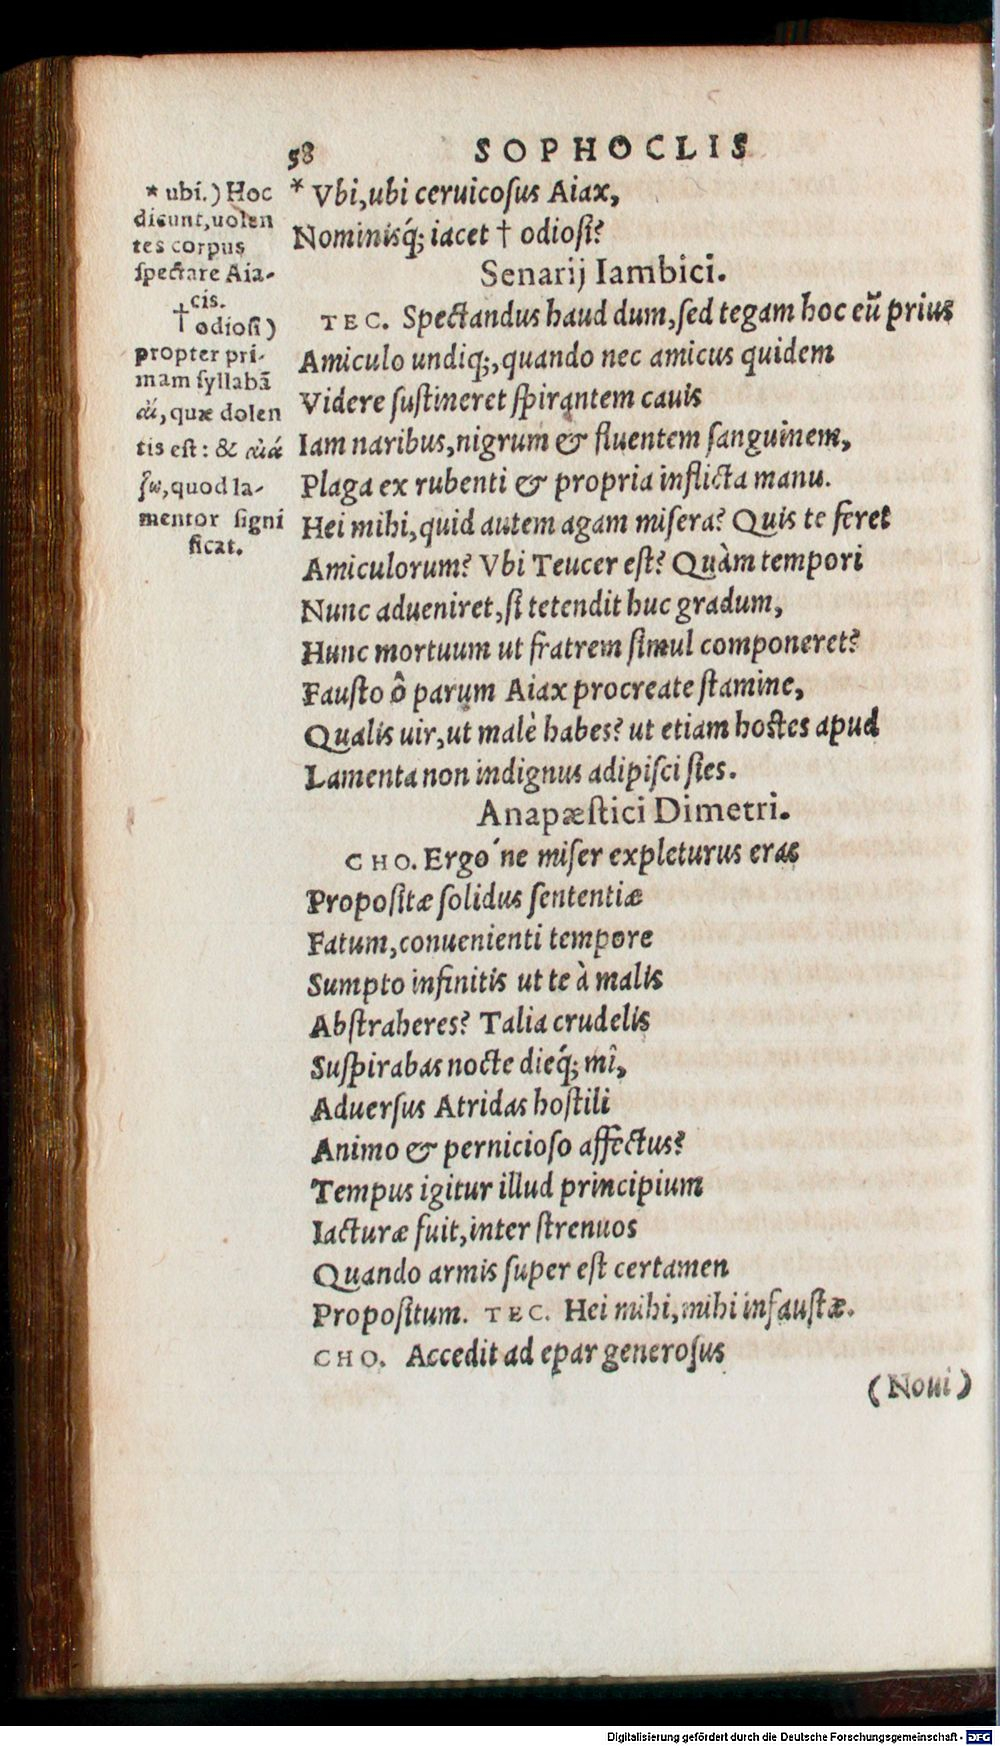 58 SOPHOCLIS
* ubi.) Hoc
dicunt, uolen
tes corpus
ſpectare Aia-
cis.
† odioſi)
propter pri-
mam ſyllabã
αἴ, quæ dolen
tis eſt: & αἰά
ζω, quod la-
mentor ſigni
ficat.
* Vbi, ubi ceruicoſus Aiax,
Nominisq́; iacet † odioſi?
Senarij Iambici.
TEC. Spectandus haud dum, ſed tegam hoc eũ prius
Amiculo undiq;, quando nec amicus quidem
Videre ſuſtineret ſpirantem cauis
Iam naribus, nigrum & fluentem ſanguinem,
Plaga ex rubenti & propria inflicta manu.
Hei mihi, quid autem agam miſera? Quis te feret
Amiculorum? Vbi Teucer eſt? Quàm tempori
Nunc adueniret, ſi tetendit huc gradum,
Hunc mortuum ut fratrem ſimul componeret?
Fauſto ô parum Aiax procreate ſtamine,
Qualis uir, ut malè habes? ut etiam hoſtes apud
Lamenta non indignus adipiſci ſies.
Anapæſtici Dimetri.
CHO. Ergo ́ne miſer expleturus eras
Propoſitæ ſolidus ſententiæ
Fatum, conuenienti tempore
Sumpto infinitis ut te à malis
Abſtraheres? Talia crudelis
Suſpirabas nocte dieq́; mî,
Aduerſus Atridas hoſtili
Animo & pernicioſo affectus?
Tempus igitur illud principium
Iacturæ fuit, inter ſtrenuos
Quando armis ſuper eſt certamen
Propoſitum. TEC. Hei mihi, mihi infauſtæ.
CHO. Accedit ad epar generoſus
(Noui)
Digitalisierung gefördert durch die Deutsche Forschungsgemeinschaft - DFG